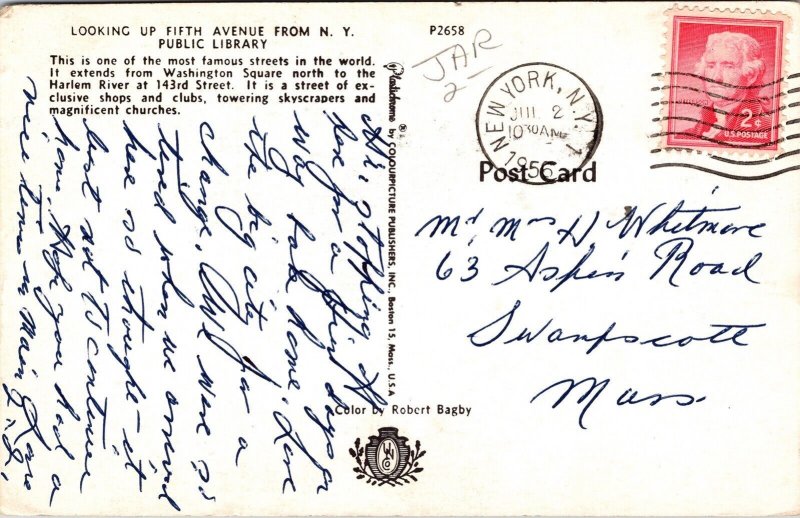 LOOKING UP FIFTH AVENUE FROM N. Y.
PUBLIC LIBRARY
This is one of the most famous streets in the world.
It extends from Washington Square north to the
Harlem River at 143rd Street. It is a street of ex-
clusive shops and clubs, towering skyscrapers and
magnificent churches.
P2658
JAR
2-
NEW YORK, N.Y. 1
JUL 2
1030 AM
1956
2¢
U.S. POSTAGE
Post Card
Mr Mrs H Whitmore
63 Aspin Road
Swampscott
Mass.
Plastichrome ® by COLOURPICTURE PUBLISHERS, INC., Boston 15, Mass., U.S.A
Color by Robert Bagby
Hi - stopping off
here for a few days on
way back home. Love
the big city for a
change. We were so
tired when we arrived
here so thought it
best not to continue
home. Hope you had a
nice time in Maine. Love